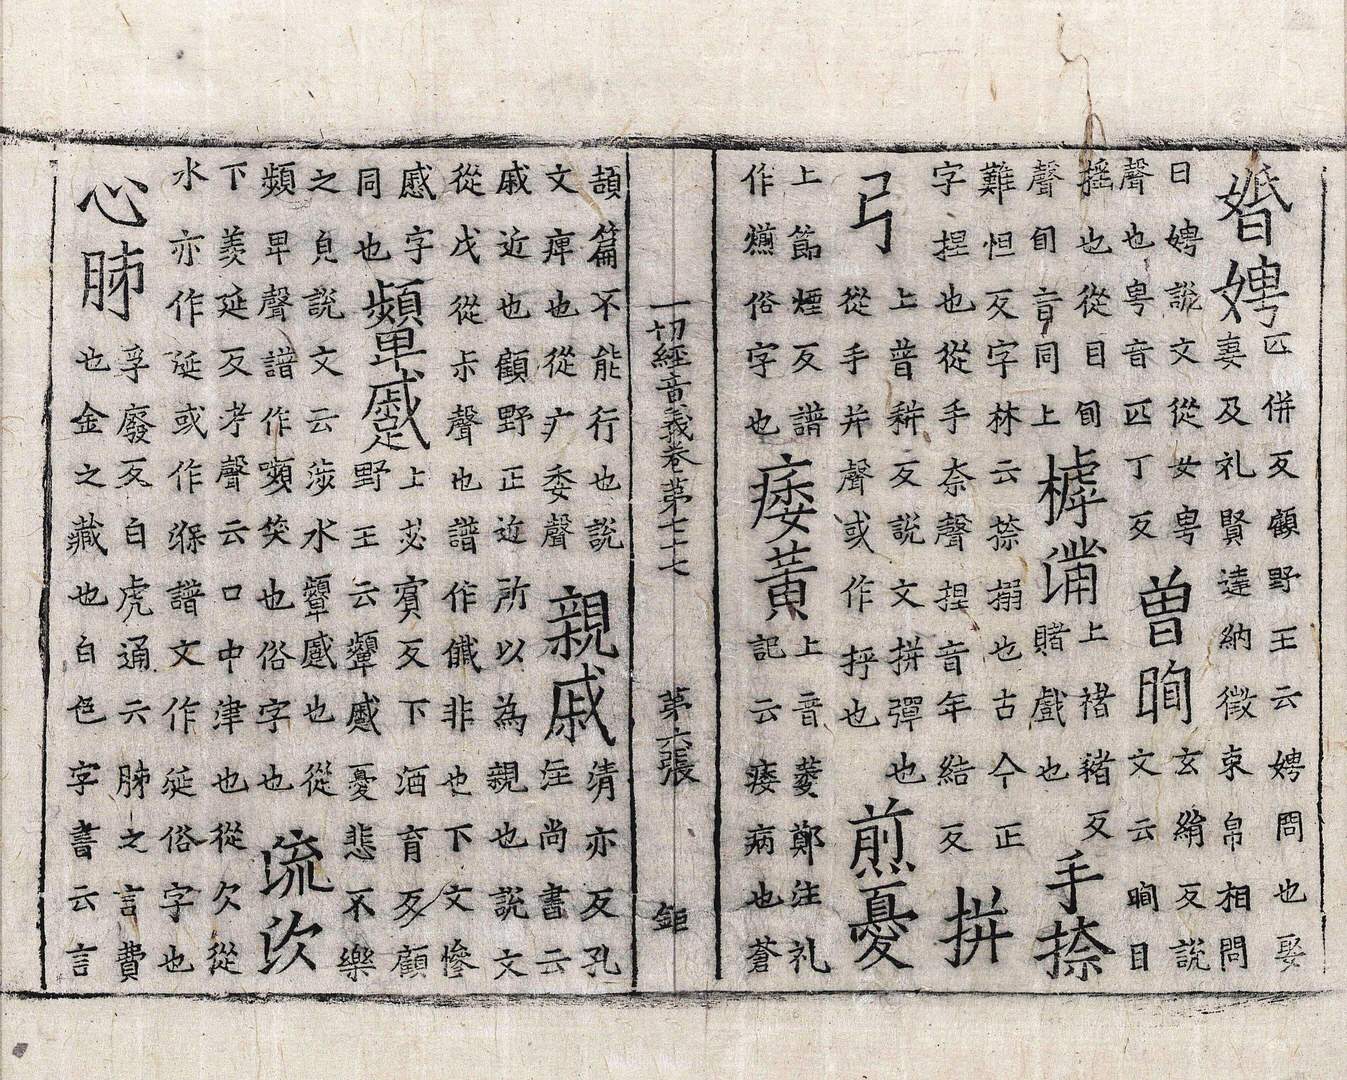 婚娉匹併反顧野王云娉問也娶
妻及礼賢達納徵束帛相問
曰娉說文從女甹
聲也甹音匹丁反
曾䀏玄絹反說
文云䀏目
摇也從目旬
聲旬音同上
樗蒱上褚豬反
賭戲也
手捺
難怛反字林云捺搦也古今正
字捏也從手奈聲捏音年結反
拼
弓上普耕反說文拼彈也
從手并聲或作抨也
煎憂
上節煙反譜
作俗字也
痿黃上音萎鄭注礼
記云痿病也蒼
一切經音義卷第七十七 第六張 鉅
頡篇不能行也說
文痺也從疒委聲
親戚清亦反孔
注尚書云
戚近也顧野正近所以為親也說文
從戉從尗聲也譜作非也下文慘
慼字
同也
顰蹙上苾賓反下酒育反顧
野王云顰慼憂悲不樂
之皃說文云涉水顰慼也從
頻卑聲譜作嚬笑也俗字也
流㳄
下羨延反考聲云口中津也從欠從
水亦作涎或作譜文作涎俗字也
心肺孚廢反白虎通云肺之言費
也金之藏也白色字書云言